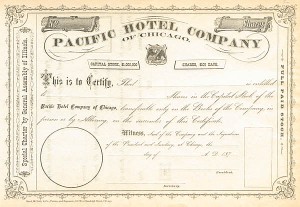 No.
Shares
PACIFIC HOTEL COMPANY
OF CHICAGO.
CAPITAL STOCK,
SHARES, $100 EACH.
This is to Certify, That is entitled
Shares in the Capital Stock of the
Pacific Hotel Company of Chicago, transferable only on the Books of the Company, in
person or by Attorney, on the surrender of this Certificate.
Witness, Seal of the Company and the Signatures
of the President and Secretary at Chicago, this
day of A.D. 187
Special Charter by General Assembly of Illinois.
FULL PAID STOCK.